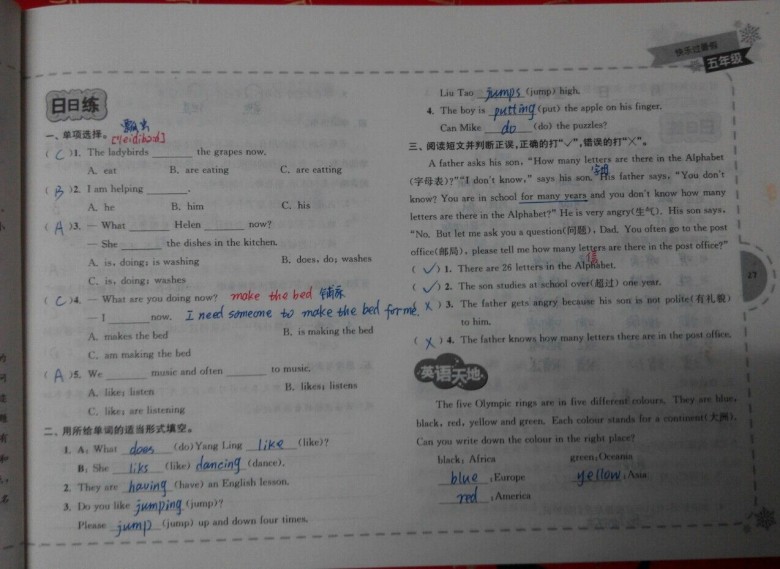 快乐过暑假
五年级
日日练
一、单项选择。 瓢虫
[ˈleidibəːd]
( C )1. The ladybirds ______ the grapes now.
A. eat B. are eating C. are eatting
( B )2. I am helping ______.
A. he B. him C. his
( A )3. — What ______ Helen ______ now?
— She ______ the dishes in the kitchen.
A. is, doing; is washing B. does, do; washes
C. is, doing; washes
( C )4. — What are you doing now? make the bed 铺床
— I ______ now. I need someone to make the bed for me.
A. makes the bed B. is making the bed
C. am making the bed
( A )5. We ______ music and often ______ to music.
A. like; listen B. likes; listens
C. like; are listening
二、用所给单词的适当形式填空。
1. A: What does (do) Yang Ling like (like)?
B: She liks (like) dancing (dance).
2. They are having (have) an English lesson.
3. Do you like jumping (jump)?
Please jump (jump) up and down four times.
Liu Tao jumps (jump) high.
4. The boy is putting (put) the apple on his finger.
Can Mike do (do) the puzzles?
三、阅读短文并判断正误,正确的打"✓",错误的打"×"。
A father asks his son, "How many letters are there in the Alphabet
字母
(字母表)?""I don't know," says his son. His father says, "You don't
know? You are in school for many years and you don't know how many
letters are there in the Alphabet?" He is very angry(生气). His son says,
"No. But let me ask you a question(问题), Dad. You often go to the post
office(邮局), please tell me how many letters are there in the post office?"
信
( ✓ ) 1. There are 26 letters in the Alphabet.
( ✓ ) 2. The son studies at school over(超过) one year.
( X ) 3. The father gets angry because his son is not polite(有礼貌)
to him.
( X ) 4. The father knows how many letters there are in the post office.
27
英语天地
The five Olympic rings are in five different colours. They are blue,
black, red, yellow and green. Each colour stands for a continent(大洲).
Can you write down the colour in the right place?
black: Africa green: Oceania
blue : Europe yellow : Asia
red : America